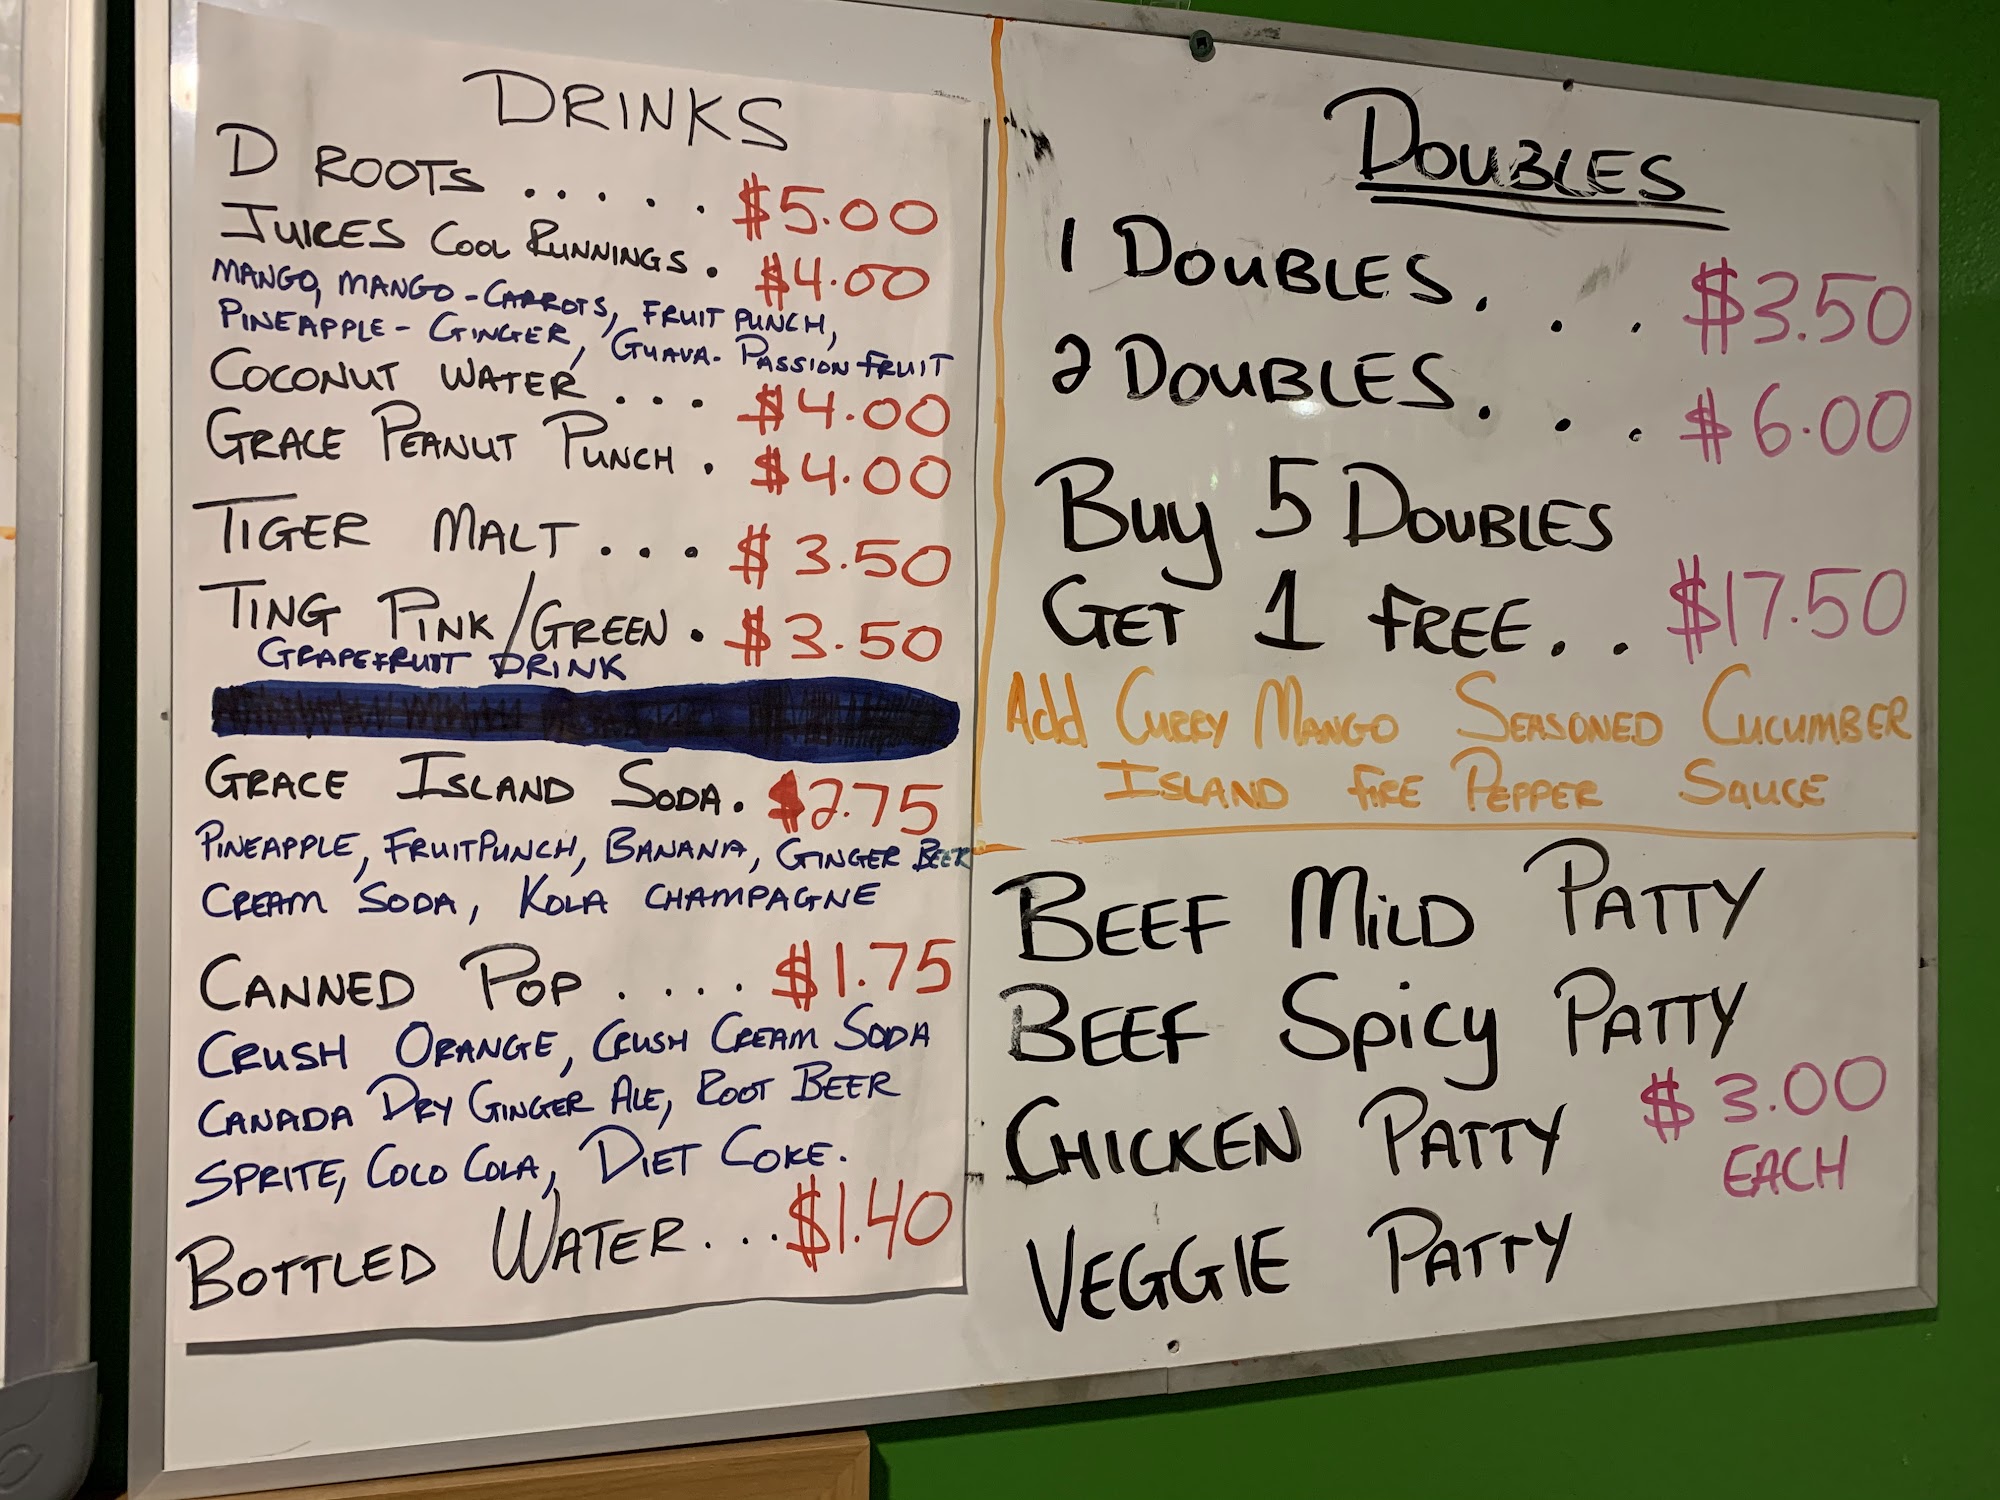 DRINKS
D ROOTS ..... $5.00
JUICES COOL RUNNINGS. $4.00
MANGO, MANGO-CARROTS, FRUIT PUNCH,
PINEAPPLE-GINGER, GUAVA-PASSION FRUIT
COCONUT WATER ... $4.00
GRACE PEANUT PUNCH . $4.00
TIGER MALT ... $3.50
TING PINK/GREEN . $3.50
GRAPEFRUIT DRINK
GRACE ISLAND SODA. $2.75
PINEAPPLE, FRUIT PUNCH, BANANA, GINGER BEER
CREAM SODA, KOLA CHAMPAGNE
CANNED POP .... $1.75
CRUSH ORANGE, CRUSH CREAM SODA
CANADA DRY GINGER ALE, ROOT BEER
SPRITE, COCO COLA, DIET COKE.
BOTTLED WATER... $1.40
DOUBLES
1 DOUBLES... $3.50
2 DOUBLES... $6.00
Buy 5 DOUBLES
GET 1 FREE.. $17.50
Add CURRY MANGO SEASONED CUCUMBER
ISLAND FIRE PEPPER SAUCE
BEEF MILD PATTY
BEEF SPICY PATTY
CHICKEN PATTY $3.00
EACH
VEGGIE PATTY